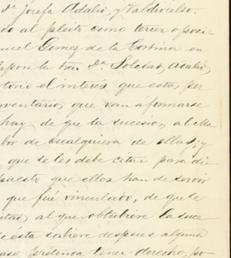 Dª Josefa Adalid, y Valdivielso
so al pleito como tercer oposi
nuel Gomez de la Cortina en
la Srª Dª Soledad, Adalid
el interés que estas per
inventarios que van a formarse
hay de que la sucesion, al Ma
de cualquiera de ellas; y
que se les debe citar para di
puesto que ellas han de servir
que fué vinculado, de que la
al que obtubiere la suce
ésta saliere despues alguna
pretenda tener derecho, po